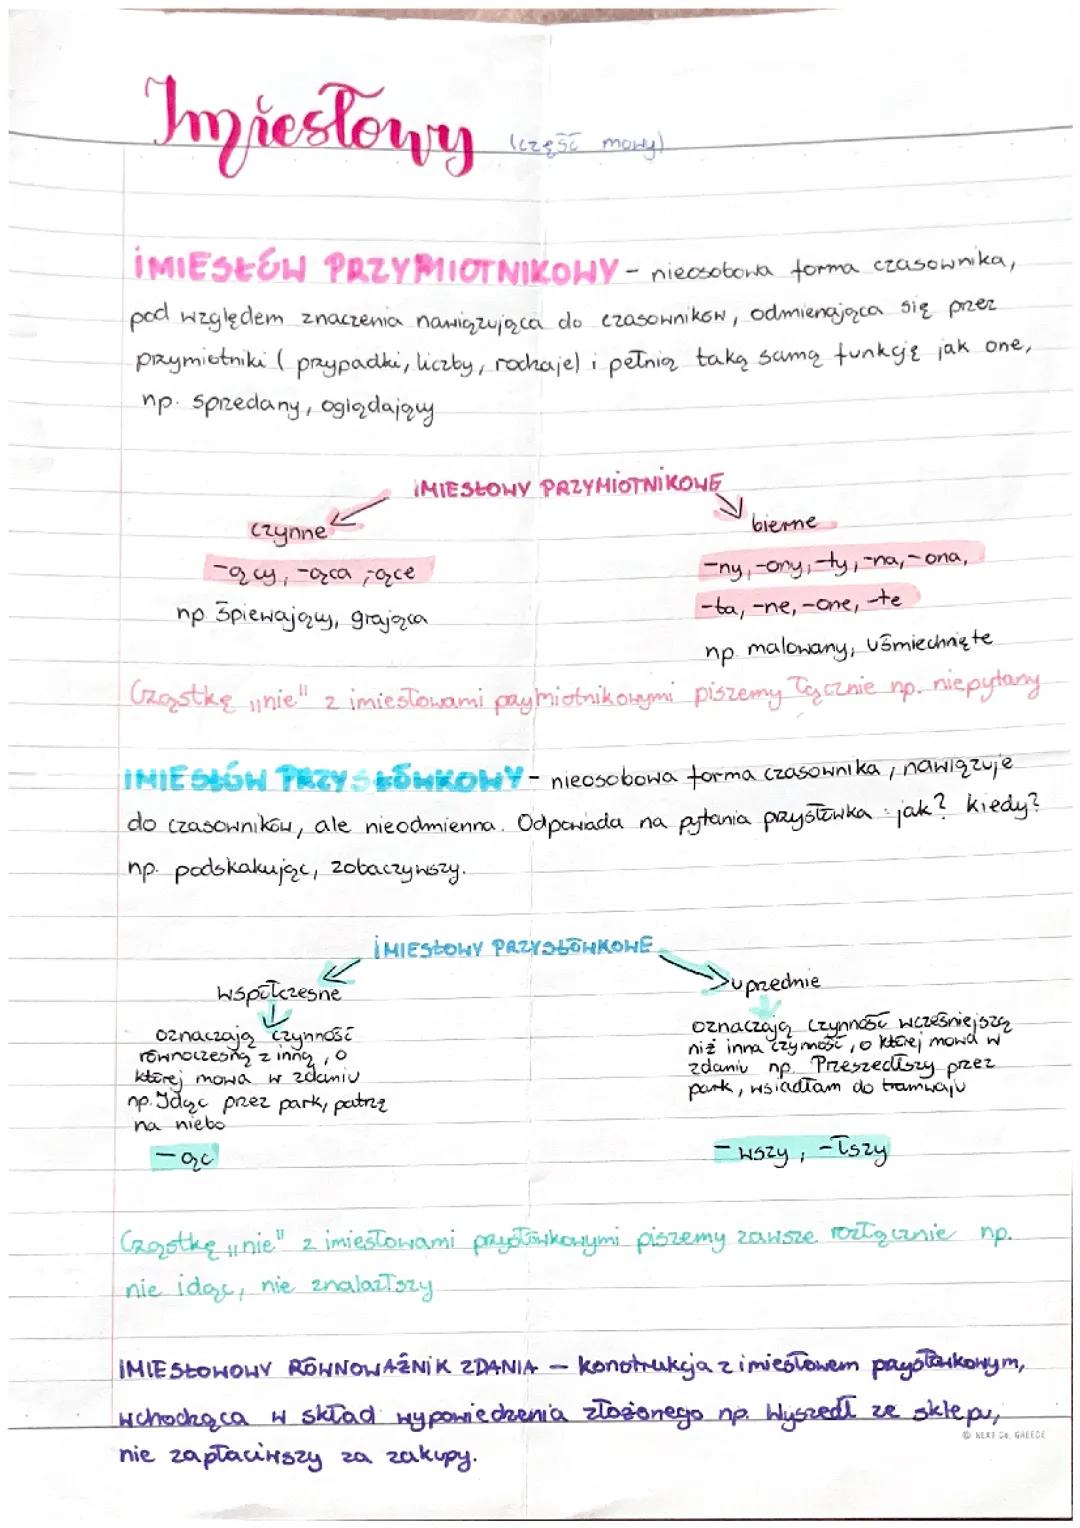 Imiesłowy (część mowy)
IMIESŁÓW PRZYMIOTNIKOWY - nieosobowa forma czasownika,
pod względem znaczenia nawiązująca do czasowników, odmienająca się przez
przymiotniki (przypadki, liczby, rodzaje) i pełnią taką samą funkcję jak one,
np. sprzedany, oglądający
IMIESŁOWY PRZYMIOTNIKOWE
czynne
-ący, -ąca, -ące
np. śpiewający, grająca
bierne
-ny, -ony, -ty, -na, -ona,
-ta, -ne, -one, -te
np. malowany, uśmiechnięte
Cząstkę „nie" z imiesłowami przymiotnikowymi piszemy łącznie np. niepytany
IMIESŁÓW PRZYSŁÓWKOWY - nieosobowa forma czasownika, nawiązuje
do czasowników, ale nieodmienna. Odpowiada na pytania przysłówka: jak? kiedy?
np. podskakując, zobaczywszy.
IMIESŁOWY PRZYSŁÓWKOWE
współczesne
oznaczają czynność
równoczesną z inną, o
której mowa w zdaniu
np. Idąc przez park, patrzę
na niebo
-ąc
uprzednie
oznaczają czynność wcześniejszą
niż inna czynność, o której mowa w
zdaniu np. Przeszedłszy przez
park, wsiadłam do tramwaju
-wszy, -łszy
Cząstkę „nie" z imiesłowami przysłówkowymi piszemy zawsze rozłącznie np.
nie idąc, nie znalazłszy
IMIESŁOWOWY RÓWNOWAŻNIK ZDANIA - konstrukcja z imiesłowem przysłówkowym,
wchodząca w skład wypowiedzenia złożonego np. Wyszedł ze sklepu,
nie zapłaciwszy za zakupy.